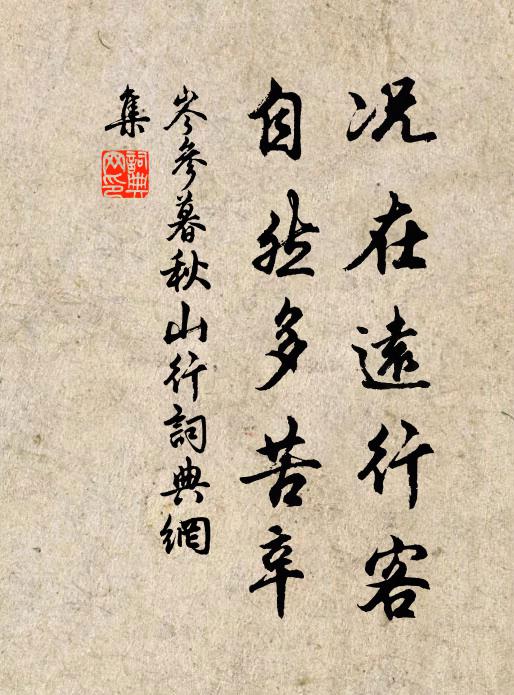 况在遠行客
自然多苦辛
岑參暮秋山行詞典網
集
詞典
网印